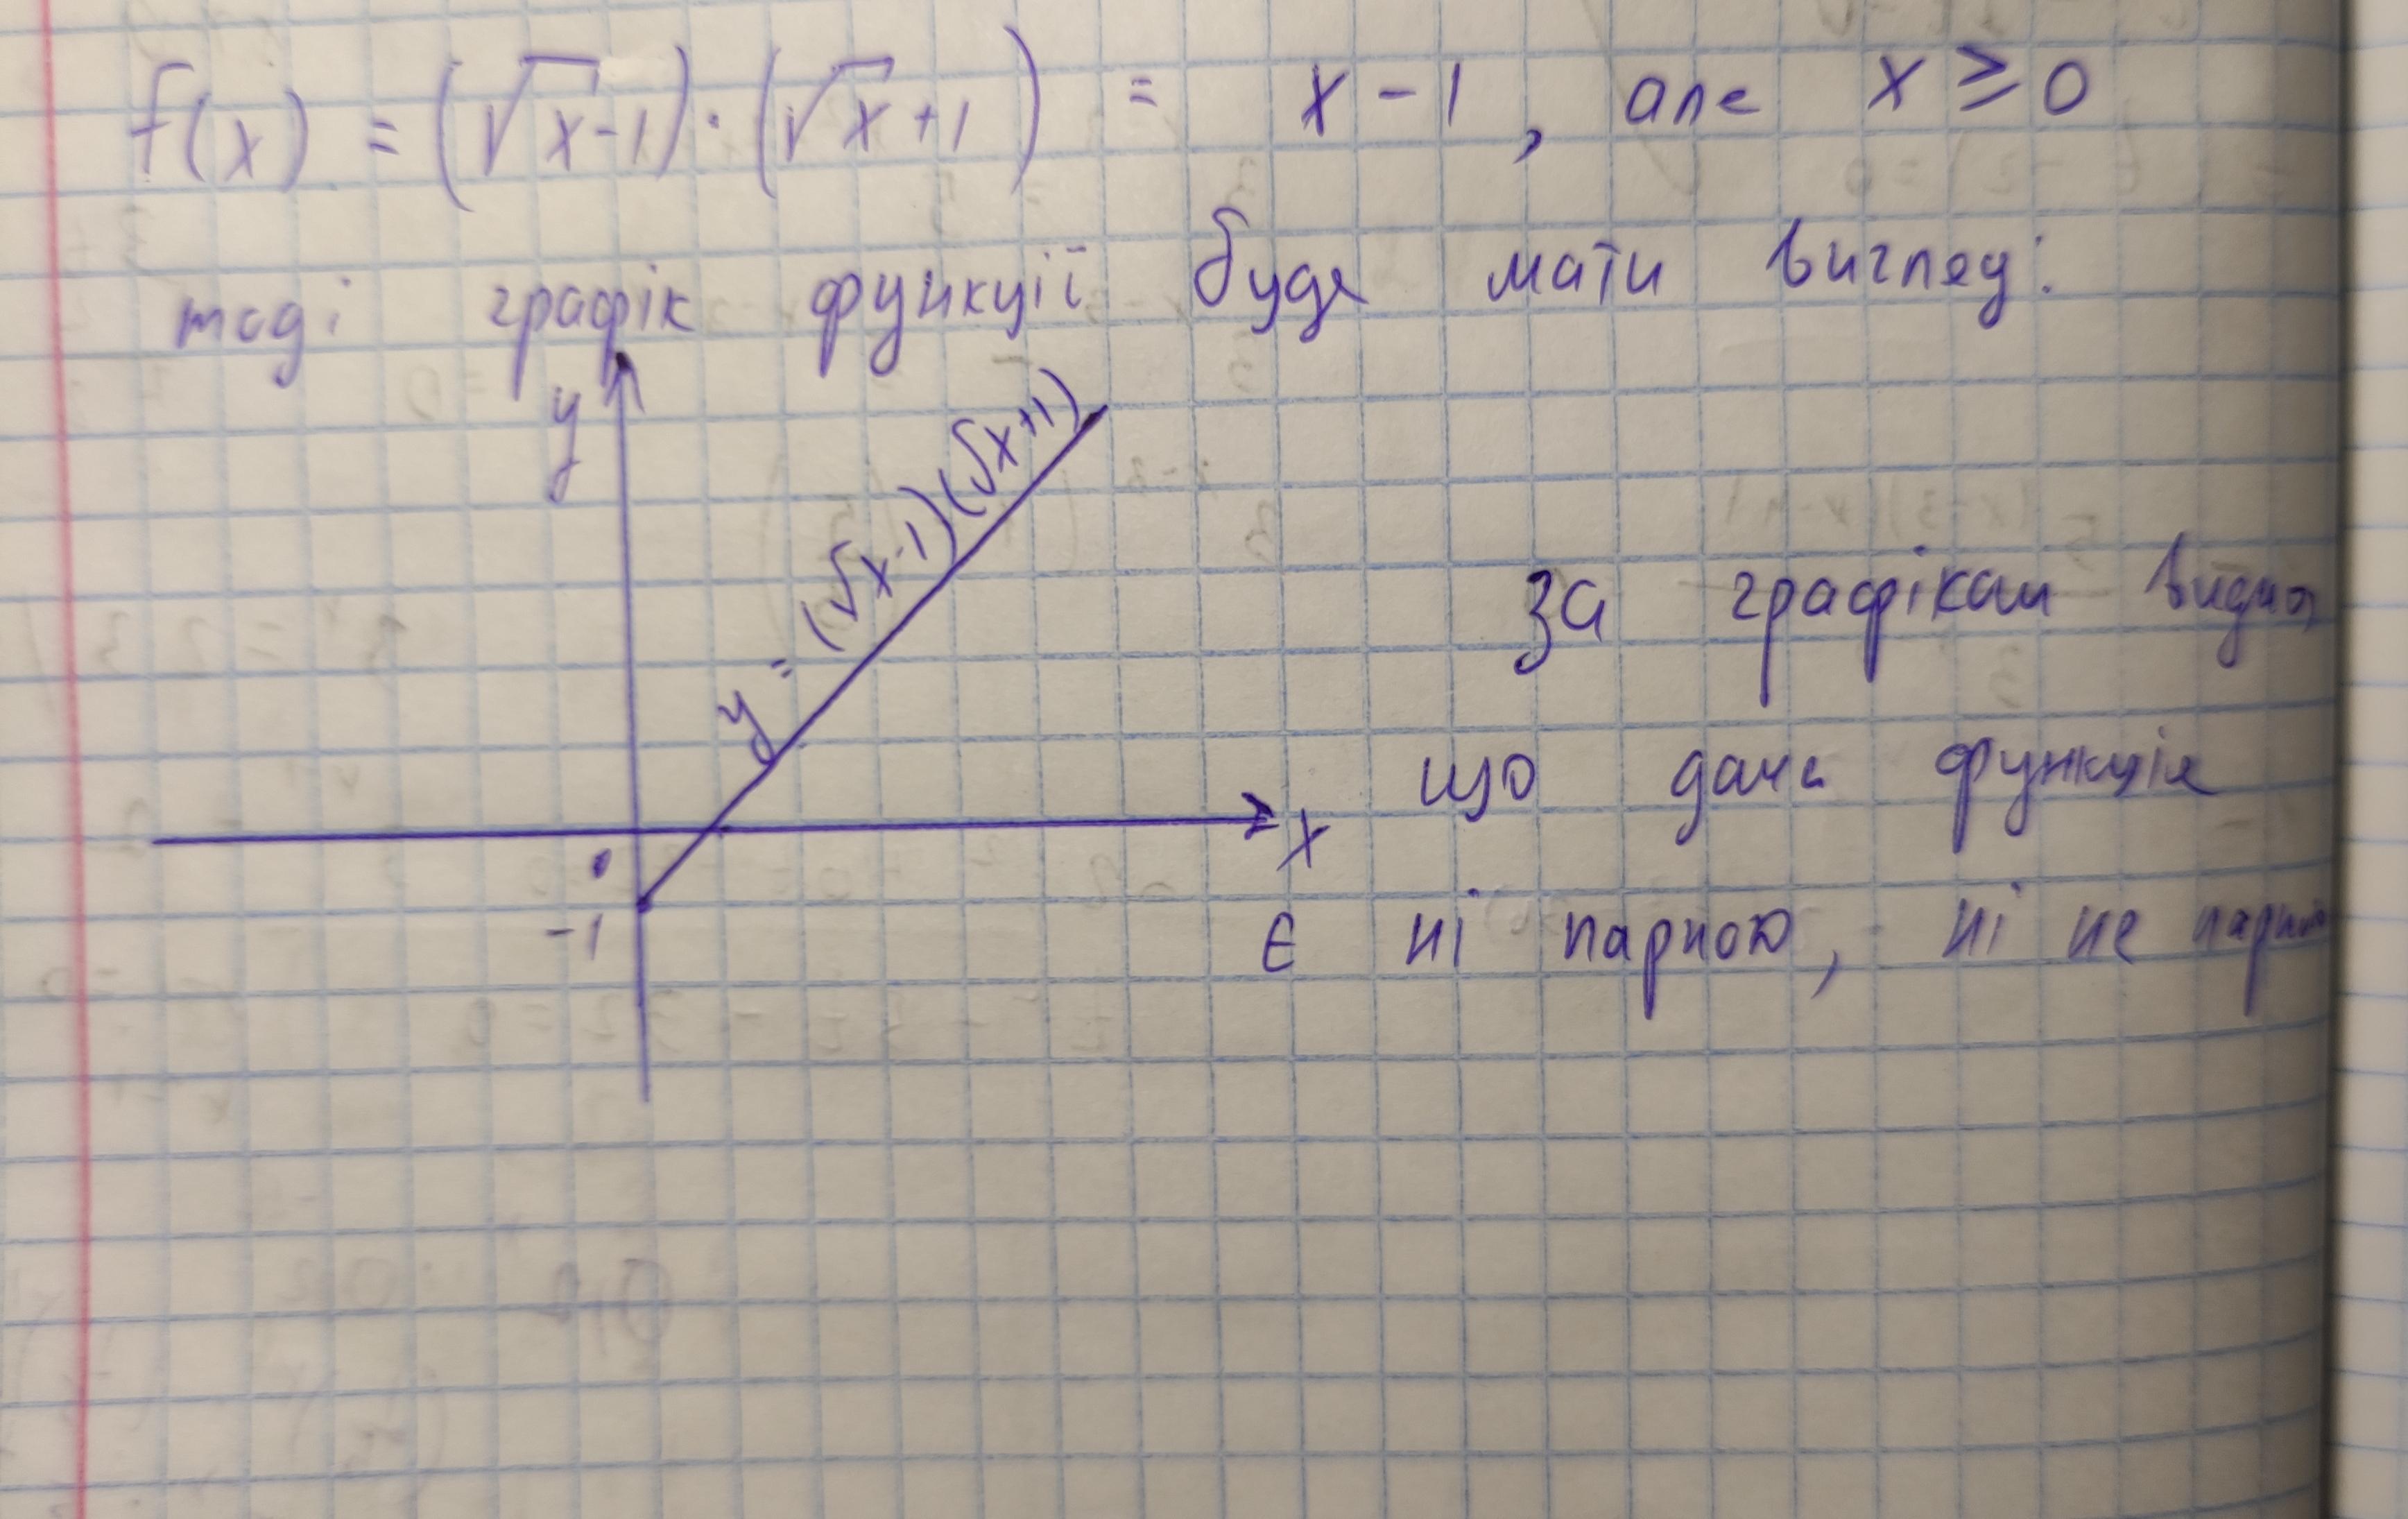 f(x) = (√x-1)·(√x+1) = x-1, але x ≥ 0
тоді графік функції буде мати вигляд:
y
y = (√x-1)(√x+1)
За графіком видно
що дана функція
x
-1
є ні парною, ні не парною